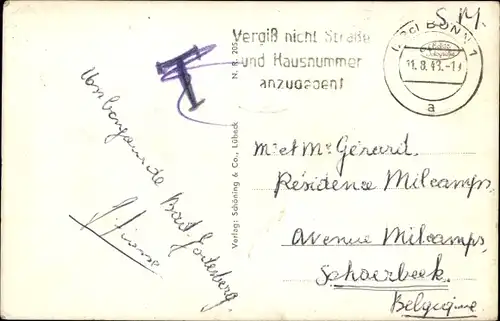 S.M.
Vergiß nicht Straße
und Hausnummer
anzugeben!
BONN 1
a
T
N. R. 205
Verlag: Schöning & Co., Lübeck
de Bad-Godesberg.
M. et Me Gérard.
Résidence Milcamps,
Avenue Milcamps,
Schaerbeek.
Belgique